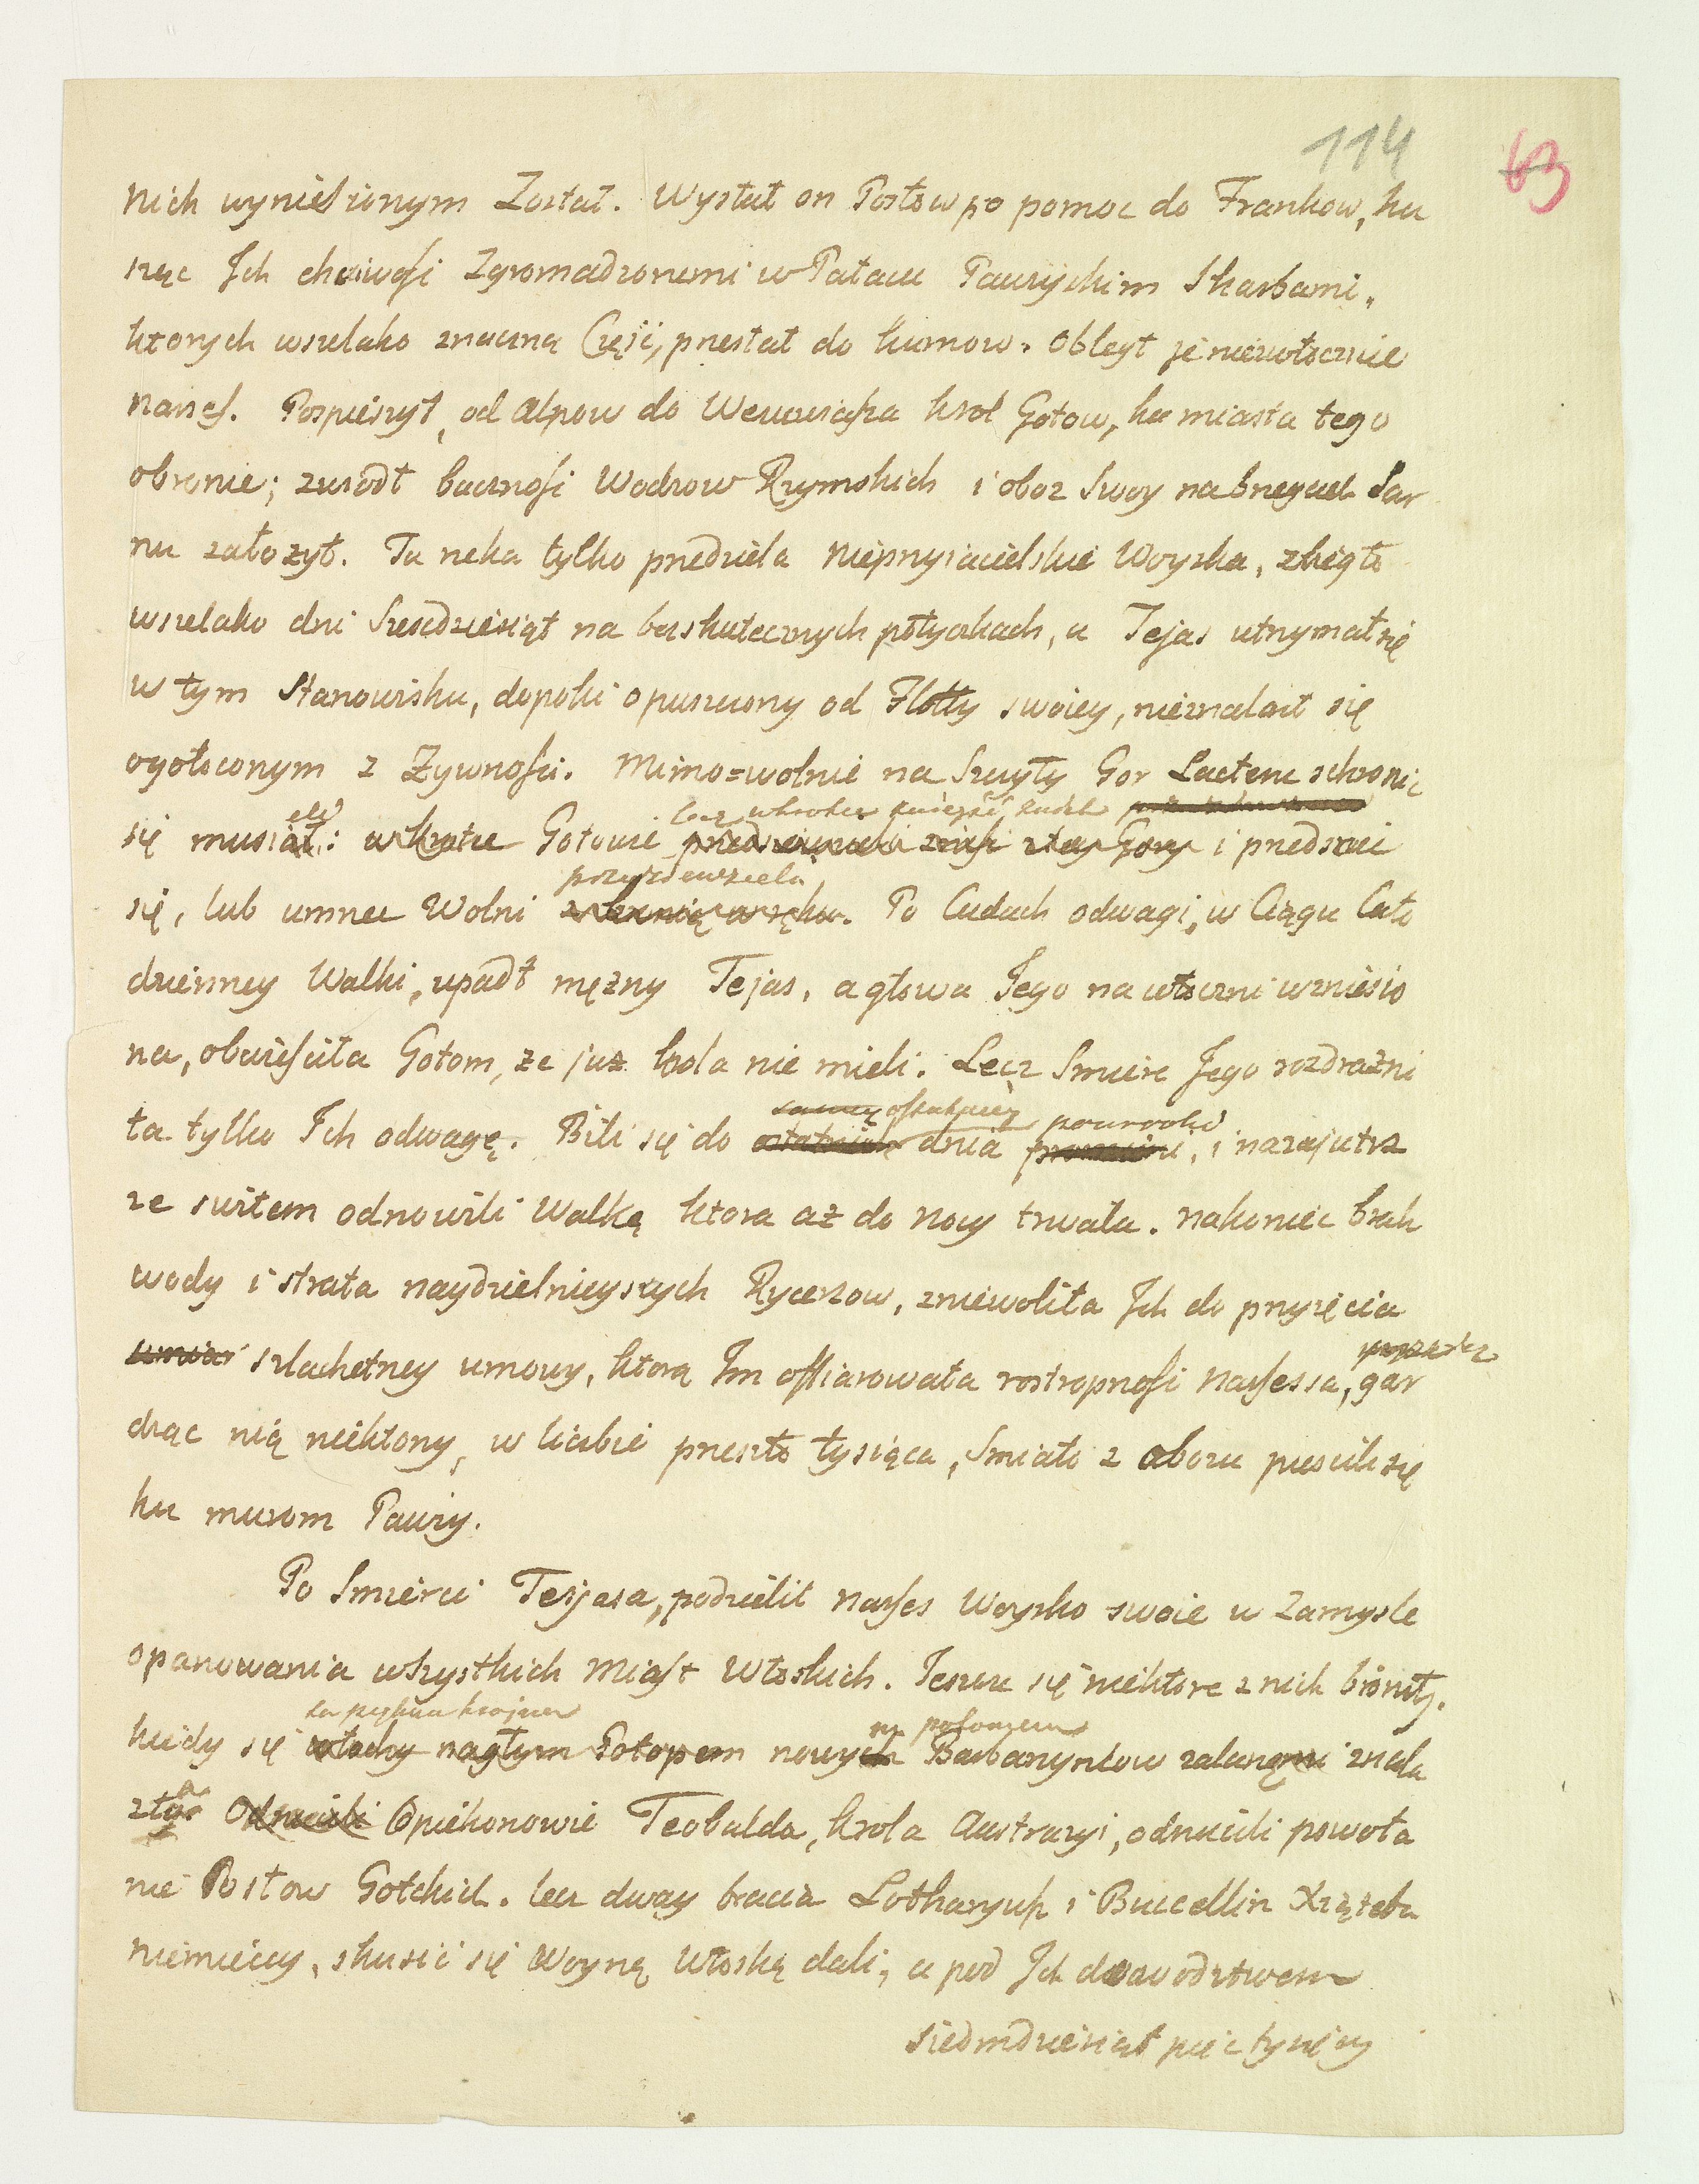 114
63
nich wyniesionym Został. Wysłał on Posłow po pomoc do Frankow, ku
sząc Ich chciwości Zgromadzonemi w Pałacu Pawyiskim Skarbami,
ktorych wszelako znaczną Część, przesłał do kumow. Obległ je niezwłocznie
narses. Pospieszył, od Alpow do Wezuwiusza krol Gotow, ku miasta tego
obronie; zwiodł baczność Wodzow Rzymskich i oboz Swoy na brzegach Sar
nu założył. Ta rzeka tylko przedziela nieprzyiacielskie Woyska, zbiegło
wszelako dni Sześdziesiąt na bezskutecznych potyczkach, a Tejas utrzymał się
w tym Stanowisku, dopoki opuszczony od Flotty swoiey, nieznalazł się
ogołoconym z Żywności. Mimo=wolnie na Szczyty Gor Lactene schronić
lecz wkrotce
się musiał: wkrotce Gotowie przedsiewzieli zniść z tey Gory i przedrzeć
przedsiewzieli
się, lub umrzeć Wolni z bronią w ręku. Po Cudach odwagi, w Ciągu Cało
dzienney Walki, upadł mężny Tejas, a głowa Jego na włoczni wzniesio
na, obwieściła Gotom, że już krola nie mieli. Lecz Smierć Jego rozdrażni
samey ostatniey powrotki
ła tylko Ich odwagę. Bili się do ostatnich dnia promieni, i nazajutrz
ze switem odnowili Walkę ktora aż do nocy trwała. nakoniec brak
wody i strata naydzielnieyszych Rycerzow, zniewoliła Ich do przyięcia
szlachetney umowy, ktorą Im offiarowała rostropność narsessa, gar
dząc nią niektorzy, w liczbie przeszło tysiąca, Smiało z obozu puscili się
ku murom Pawiy.
Po Smierci Tejasa, podzielił narses Woysko swoie w Zamysle
opanowania wszystkich Miast Włoskich. Jeszcze się niektore z nich broniły,
ta piękna kraina
kiedy się włochy nagłym Potopem nowych Barbarzyńcow zalanemi znala
zły Odrzucili Opiekonowie Teobalda, krola Austrazyi, odrzucili powoła
nie Posłow Gotckich. lecz dway bracia Lotharyusz i Buccellin Xiążęta
niemieccy, skusić się Woyną Włoską dali, a pod Ich dowodztwem
siedmdziesiąt pięć tysięcy